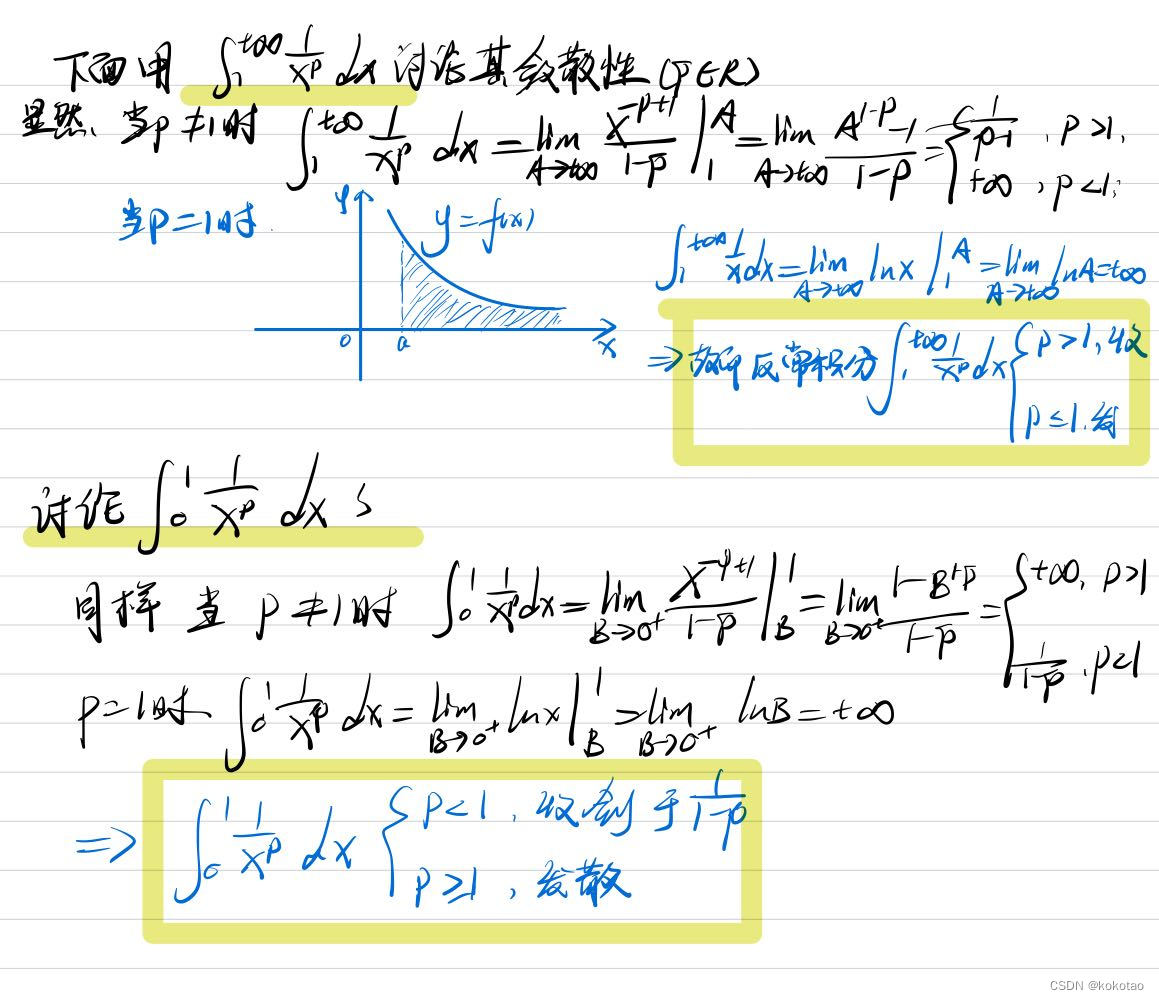 下面用 ∫₁^{+∞} 1/x^p dx 讨论其敛散性(p∈R)
显然、当p≠1时 ∫₁^{+∞} 1/x^p dx = lim_{A→+∞} x^{-p+1}/(1-p) |₁^A = lim_{A→+∞} (A^{1-p}-1)/(1-p) = { 1/(p-1), p>1, +∞, p<1;
当p=1时.
y
y=f(x)
0 a x
∫₁^{+∞} 1/x dx = lim_{A→+∞} lnx |₁^A = lim_{A→+∞} lnA = +∞
⇒ 故知反常积分 ∫₁^{+∞} 1/x^p dx { p>1, 收 p≤1, 发
讨论 ∫₀^1 1/x^p dx
同样 当 p≠1时 ∫₀^1 1/x^p dx = lim_{B→0⁺} x^{-p+1}/(1-p) |_B^1 = lim_{B→0⁺} (1-B^{1-p})/(1-p) = { +∞, p>1 1/(1-p), p<1
p=1时 ∫₀^1 1/x^p dx = lim_{B→0⁺} lnx |_B^1 = lim_{B→0⁺} lnB = +∞
⇒ ∫₀^1 1/x^p dx { p<1, 收敛于 1/(1-p) p≥1, 发散
CSDN @kokotao